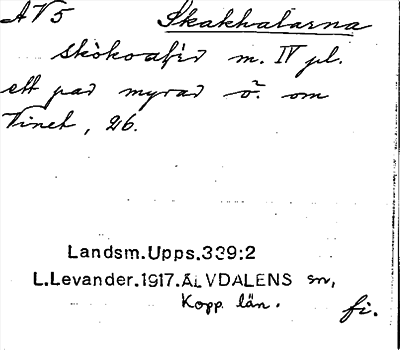 AV5 Skakhalarna
skòkoaľeð m. IV pl.
ett par myrar ö. om
Vinet, 26.
Landsm.Upps.339:2
L.Levander.1917.ÄLVDALENS sn,
Kopp. län.
fi.